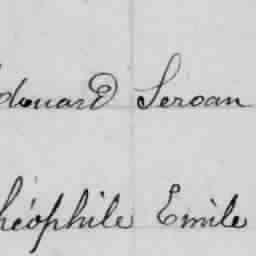 douard Seroan
héophile Emile